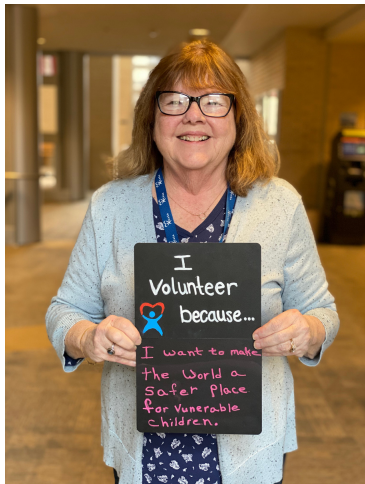 I
Volunteer
because...
I want to make
the World a
Safer Place
for Vunerable
children.